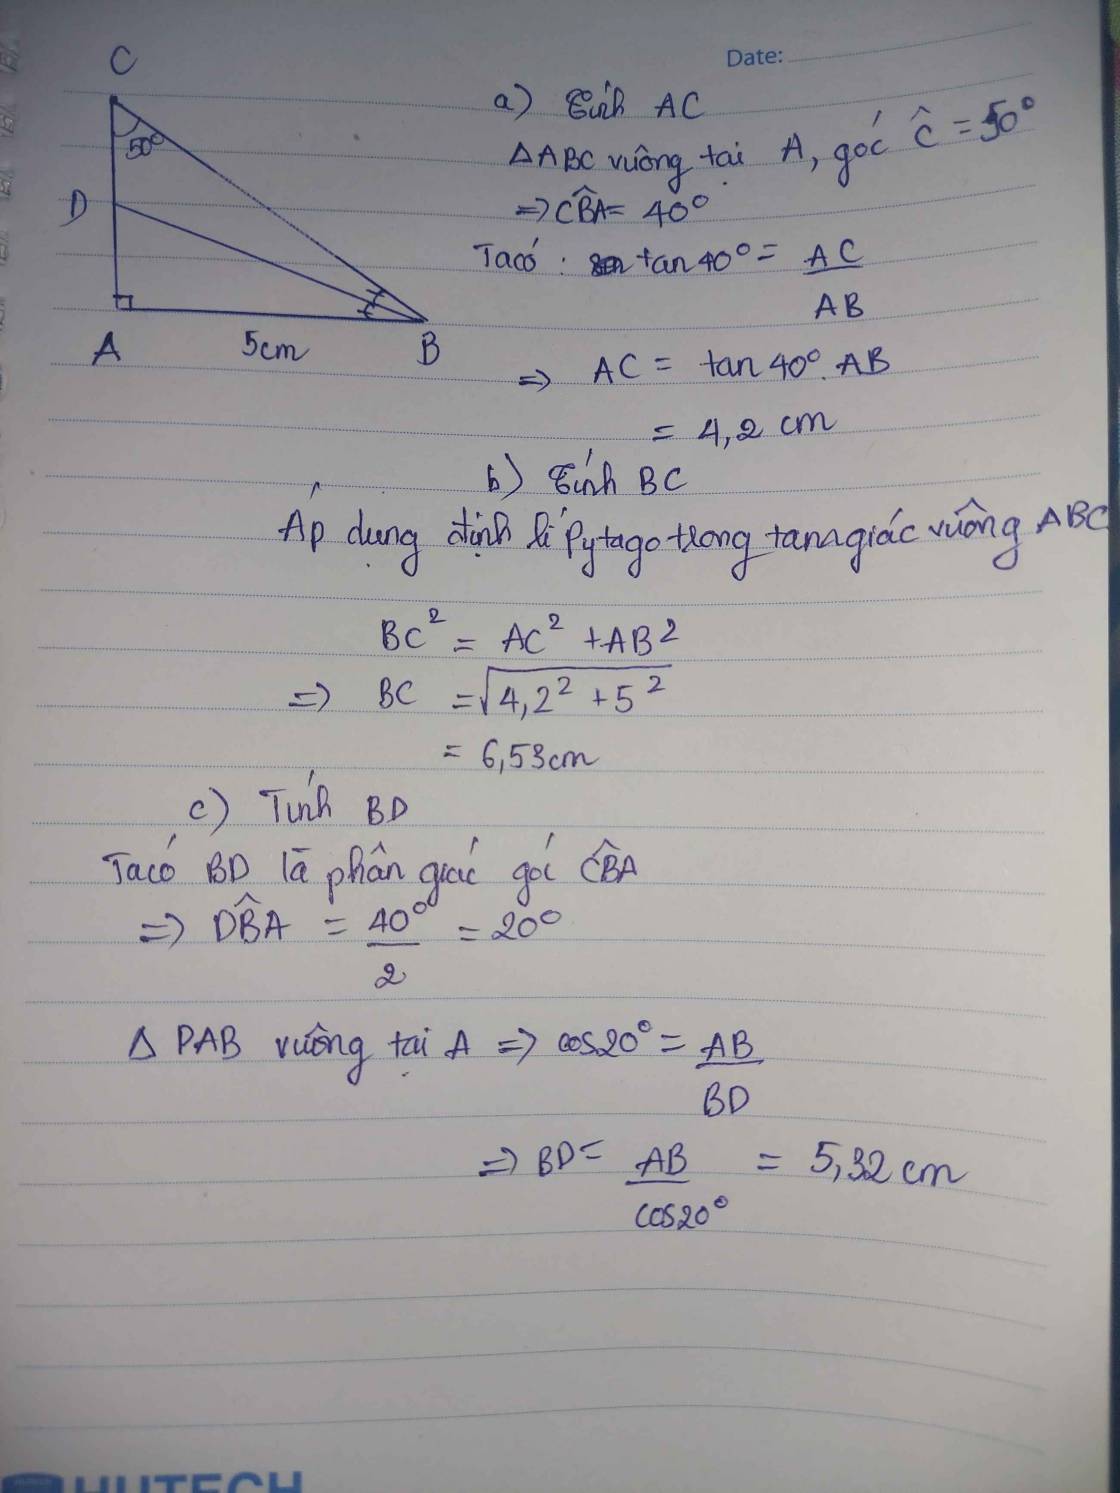 Date:
C
50°
D
A
5cm
B
a) Tính AC
ΔABC vuông tại A, góc Ĉ = 50°
=> CB̂A = 40°
Ta có : tan 40° = AC / AB
=> AC = tan 40° . AB
= 4,2 cm
b) Tính BC
Áp dụng định lí Pytago trong tam giác vuông ABC
BC² = AC² + AB²
=> BC = √4,2² + 5²
= 6,53cm
c) Tính BD
Ta có BD là phân giác góc CB̂A
=> DB̂A = 40° / 2 = 20°
Δ DAB vuông tại A => cos20° = AB / BD
=> BD = AB / cos20° = 5,32 cm
HUTECH